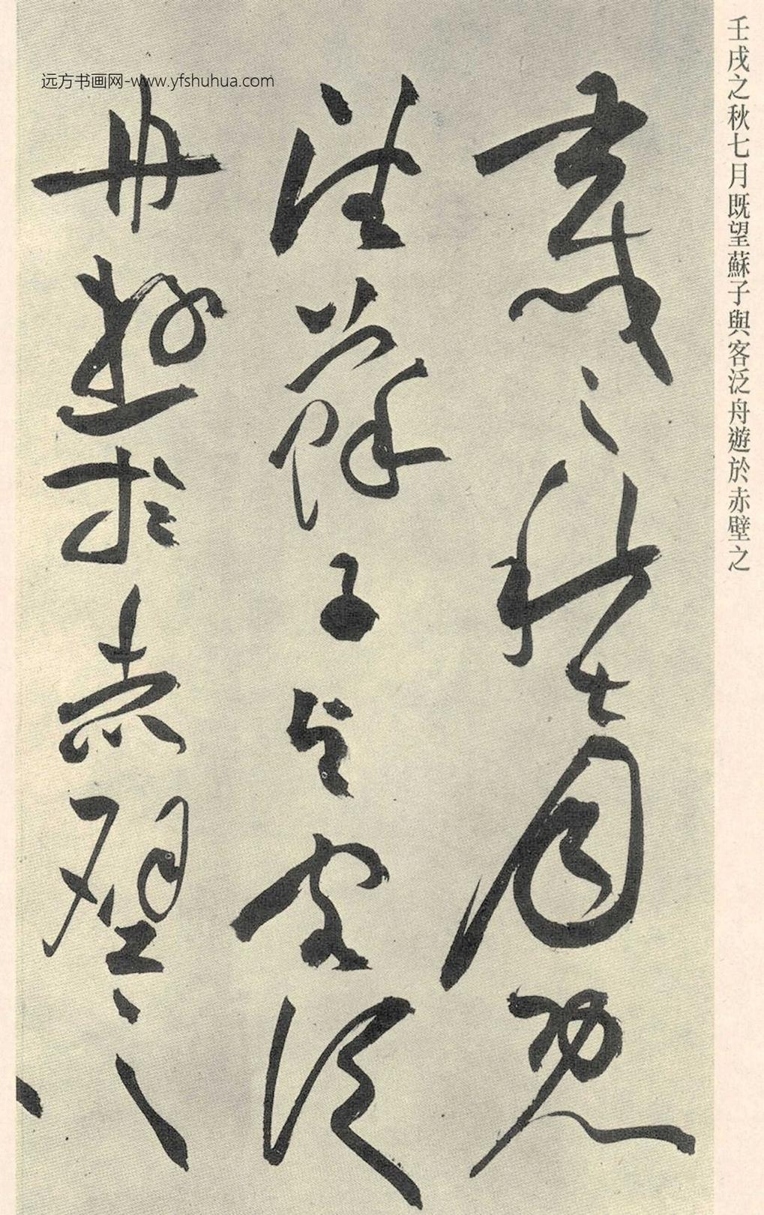 壬戌之秋七月既望蘇子與客泛舟遊於赤壁之
壬戌之秋七月既
望蘇子与客泛
舟遊於赤壁之
远方书画网-www.yfshuhua.com